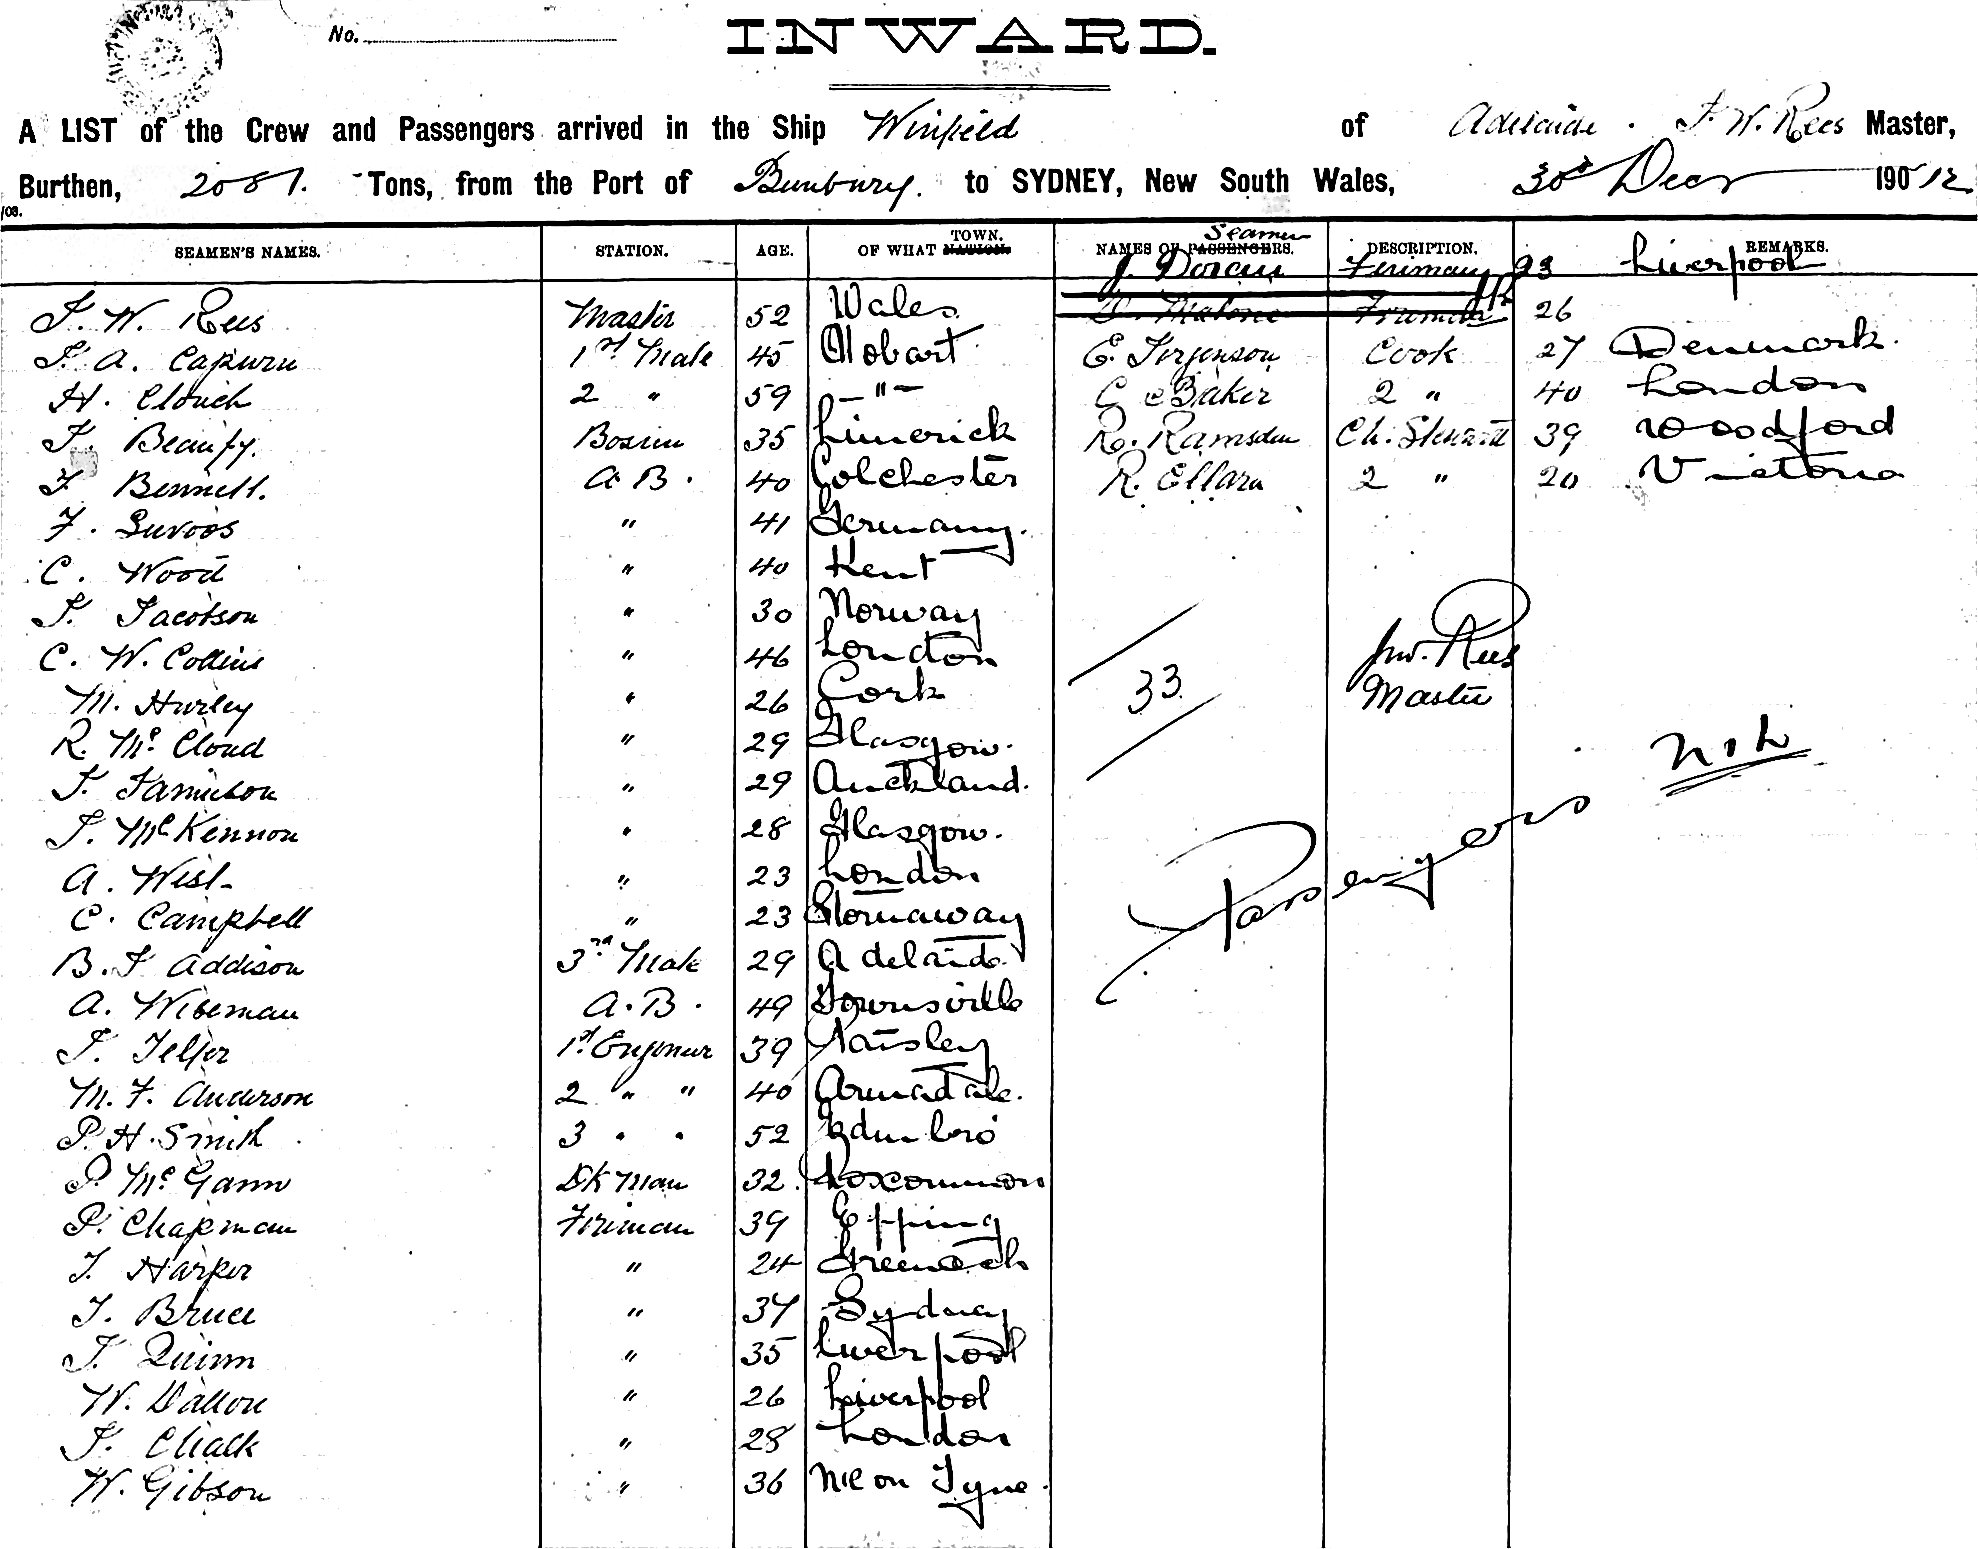 No.
INWARD.
A LIST of the Crew and Passengers arrived in the Ship Winfield of Adelaide. J. W. Rees Master,
Burthen, 2087. Tons, from the Port of Bunbury. to SYDNEY, New South Wales, 30th Decr 190 12
SEAMEN'S NAMES. STATION. AGE. OF WHAT NATION. TOWN. NAMES OF PASSENGERS. Seamen DESCRIPTION. REMARKS.
J. Doran Fireman 23 Liverpool
J. W. Rees Master 52 Wales D. Malone Fireman 26
J. A. Capurn 1st Mate 45 Hobart E. Jorgenson Cook 27 Denmark.
H. Clouch 2 " 59 -"- C Baker 2 " 40 London
J. Bosun 35 Limerick R. Ramsden Ch. Steward 39 Woodford
J. Bennett. A.B. 40 Colchester R. Ellara 2 " 20 Victoria
J. " 41 Germany.
C. Wood " 40 Kent
J. Jacobson " 30 Norway
C. W. Collins " 46 London
M. Hurley " 26 Cork 33 J.W. Rees Master
R. Mc Cloud " 29 Glasgow. Nil
J. Jamieson " 29 Auckland.
J. McKennon " 28 Glasgow. Passengers
A. West " 23 London
C. Campbell " 23 Stornaway
B. J Addison 3rd Mate 29 Adelaide
A. Wiseman A.B. 49 Townsville
J. Telfer 1st Engineer 39 Paisley
M. F. Anderson 2 " " 40 Armadale.
P. H. Smith 3 " " 52 Edinboro
P. Mc Gann Dk Man 32 Roscommon
P. Chapman Fireman 39 Epping
J. Harper " 24 Greenock
J. Bruce " 37 Sydney
J. Quinn " 35 Liverpool
W. Dalton " 26 Liverpool
J. Chalk " 28 London
W. Gibson " 36 N'c on Tyne.